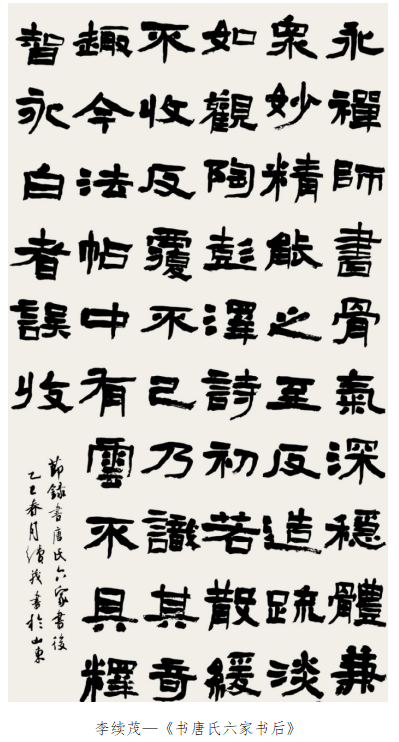 永禪師書骨氣深穩體兼
衆妙精能之至反造疏淡
如觀陶彭澤詩初若散緩
不收反覆不已乃識其奇
趣今法帖中有雲不具釋
智永白者誤收
節錄書唐氏六家書後
乙巳春月續茂書於山東
李续茂—《书唐氏六家书后》